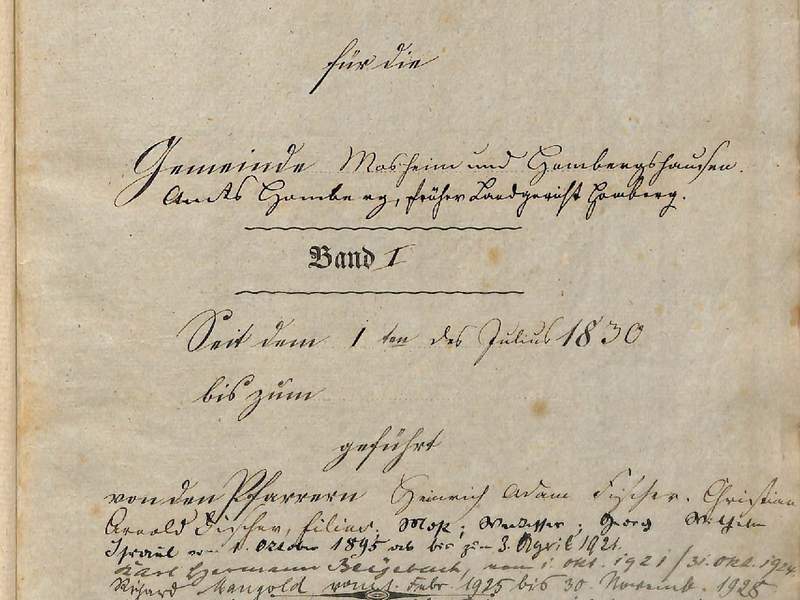 für die
Gemeinde Mosheim und Hombergshausen.
Amts Homberg, früher Landgericht Homberg.
Band I
Seit dem 1 ten des Julius 1830
bis zum
geführt
von den Pfarrern Heinrich Adam Fischer. Christian
Arnold Fischer, filius. Georg Wilhelm
vom 1. Oktober 1895 ab bis zum 3. April 1921.
Karl Hermann vom 1. Okt. 1921/31. Okt. 1924.
Richard Mangold vom 1. Febr. 1925 bis 30. Novemb. 1928